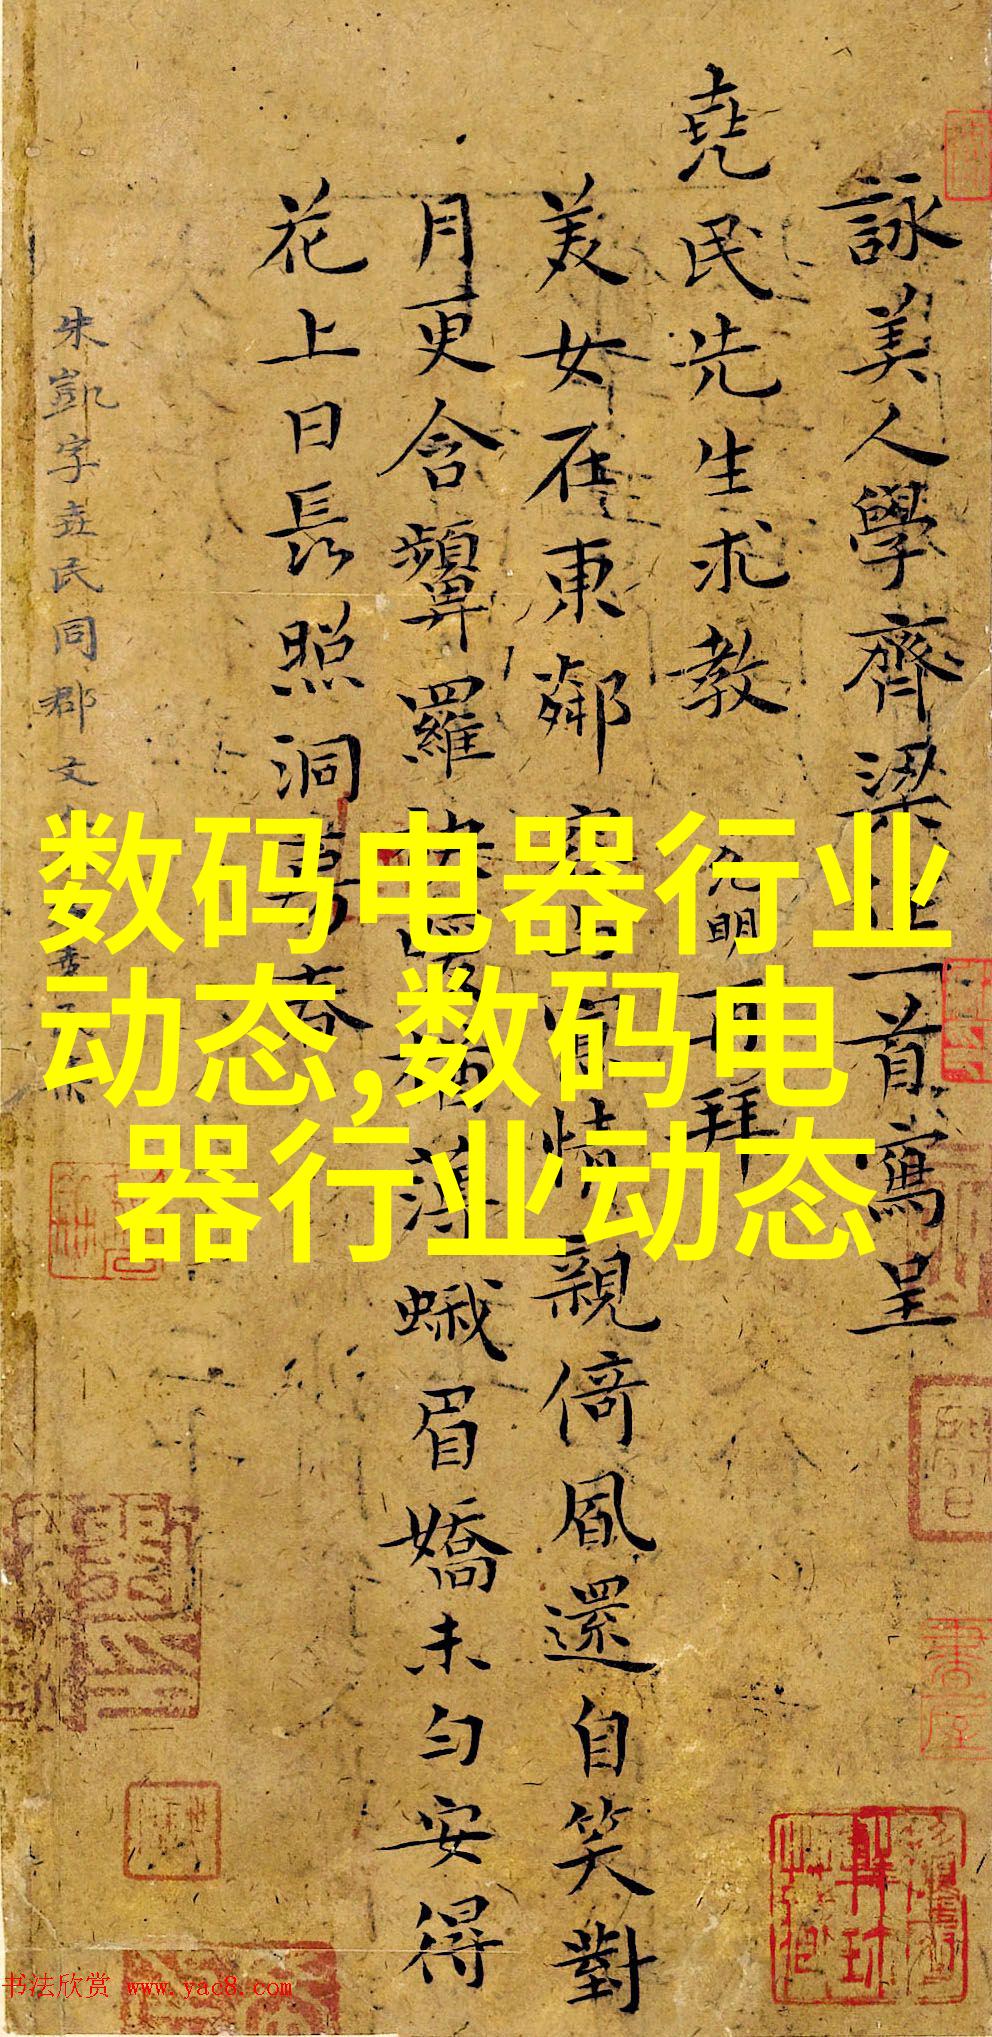 詠美人學齊梁體一首寫呈
堯民先生求教 允明再拜
美女在東鄰 情親倚風還自笑對
月更含顰羅 薄蛾眉嬌未勻安得
花上日長照洞房春
朱凱字堯民同郡文
数码电器行业
动态,数码电
器行业动态
书法欣赏 www.yac8.com